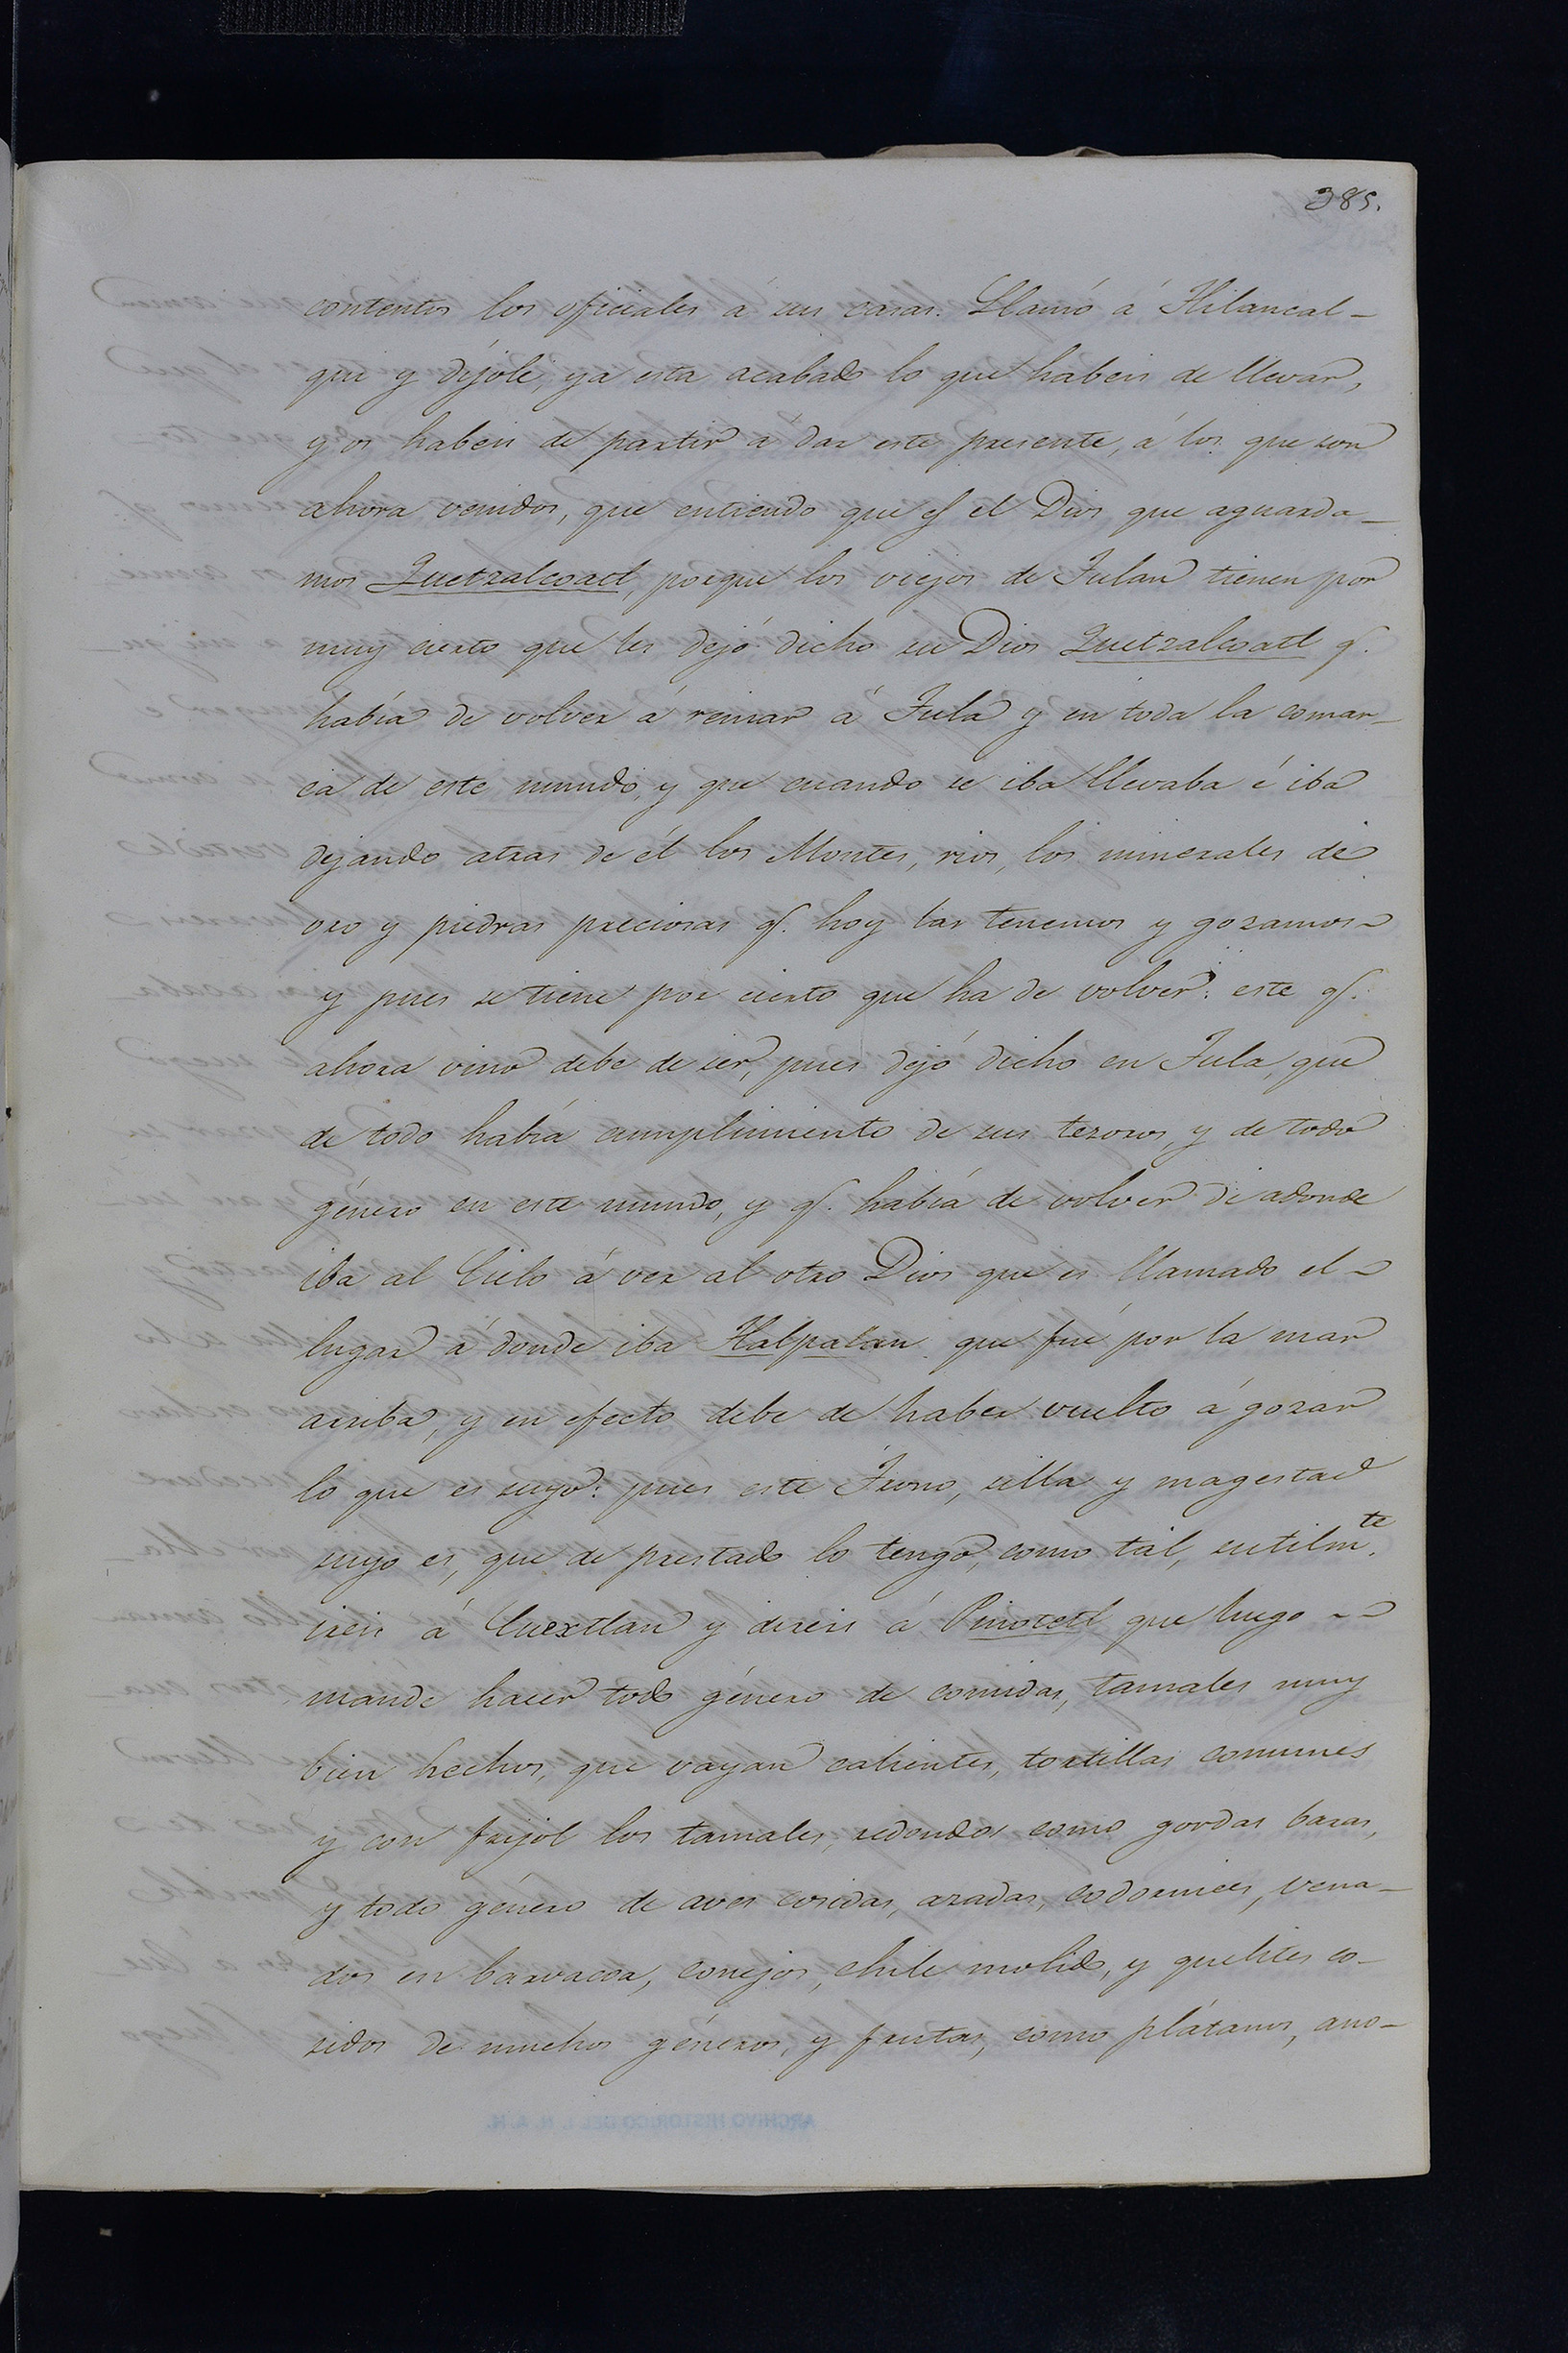 385.
contentos los oficiales á sus casas. Llamó á Tlilancal-
qui y díjole, ya esta acabado lo que habeis de llevar,
y os habeis de partir á dar este presente, á los que son
ahora venidos, que entiendo que es el Dios que aguarda-
mos Quetzalcoatl, porque los viejos de Tulan tienen por
muy cierto que les dejó dicho su Dios Quetzalcoatl q.
había de volver á reinar á Tula y en toda la comar-
ca de este mundo, y que cuando se iba llevaba é iba
dejando atras de él los Montes, rios, los minerales de
oro y piedras preciosas q. hoy las tenemos y gozamos
y pues se tiene por cierto que ha de volver: este q.
ahora vino debe de ser, pues dejó dicho en Tula, que
de todo había cumplimiento de sus tezoros, y de todo
género en este mundo, y q. había de volver de adonde
iba al Cielo á ver al otro Dios que es llamado el
lugar á donde iba Tlalpalan que fué por la mar
arriba, y en efecto debe de haber vuelto á gozar
lo que es suyo: pues este Trono, silla y magestad
suyo es, que de prestado lo tengo, como tal, sutilmte.
ireis á Cuextlan y direis á Pinotetl que luego
mande hacer todo género de comidas, tamales muy
bien hechos, que vayan calientes, tortillas comunes
y con frijol los tamales, redondos como gordas baras,
y todo género de aves cosidas, azadas, codornices, vena-
dos en barvacoa, conejos, chile molido, y quelites co-
sidos de muchos géneros, y frutas, como plátanos, ano-
ARCHIVO HISTORICO DEL I. N. A. H.